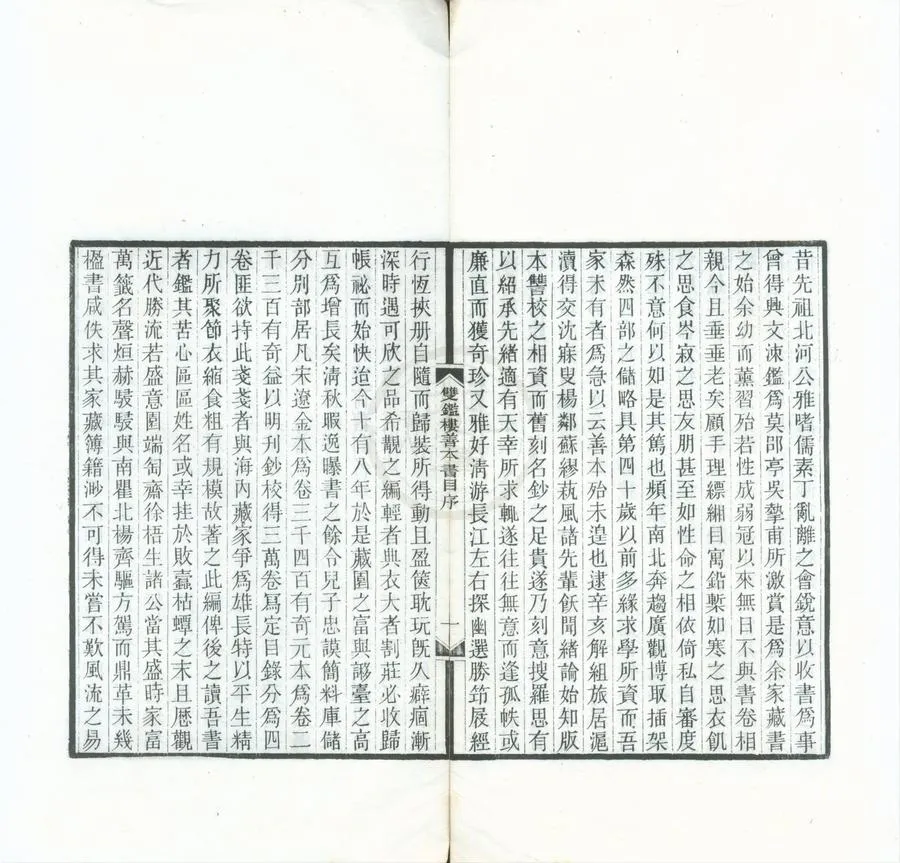 昔先祖北河公雅嗜儒素丁亂離之會銳意以收書爲事
曾得興文涑鑑爲莫郘亭吳摯甫所激賞是爲余家藏書
之始余幼而薰習殆若性成弱冠以來無日不與書卷相
親今且垂垂老矣顧手理縹緗目寓鉛槧如寒之思衣飢
之思食岑寂之思友朋甚至如性命之相依倚私自審度
殊不意何以如是其篤也頻年南北奔趨廣觀博取插架
森然四部之儲略具第四十歲以前多緣求學所資而吾
家未有者爲急以云善本殆未遑也逮辛亥解組旅居滬
瀆得交沈寐叟楊鄰蘇繆蓺風諸先輩飫聞緒論始知版
本讐校之相資而舊刻名鈔之足貴遂乃刻意搜羅思有
以紹承先緒適有天幸所求輒遂往往無意而逢孤帙或
廉直而獲奇珍又雅好淸游長江左右探幽選勝笻屐經
雙鑑樓善本書目序
一
行恆挾册自隨而歸裝所得動且盈篋耽玩旣久癖痼漸
深時遇可欣之品希覯之編輕者典衣大者割莊必收歸
帳祕而始快迨今十有八年於是藏園之富與謻臺之高
互爲增長矣淸秋暇逸曝書之餘令兒子忠謨簡料庫儲
分別部居凡宋遼金本爲卷三千四百有奇元本爲卷二
千三百有奇益以明刊鈔校得三萬卷寫定目錄分爲四
卷匪欲持此戔戔者與海內藏家爭爲雄長特以平生精
力所聚節衣縮食粗有規模故著之此編俾後之讀吾書
者鑑其苦心區區姓名或幸挂於敗蠹枯蟫之末且厯觀
近代勝流若盛意園端匋齋徐梧生諸公當其盛時家富
萬籤名聲烜赫駸駸與南瞿北楊齊驅方駕而鼎革未幾
楹書咸佚求其家藏簿籍渺不可得未嘗不歎風流之易